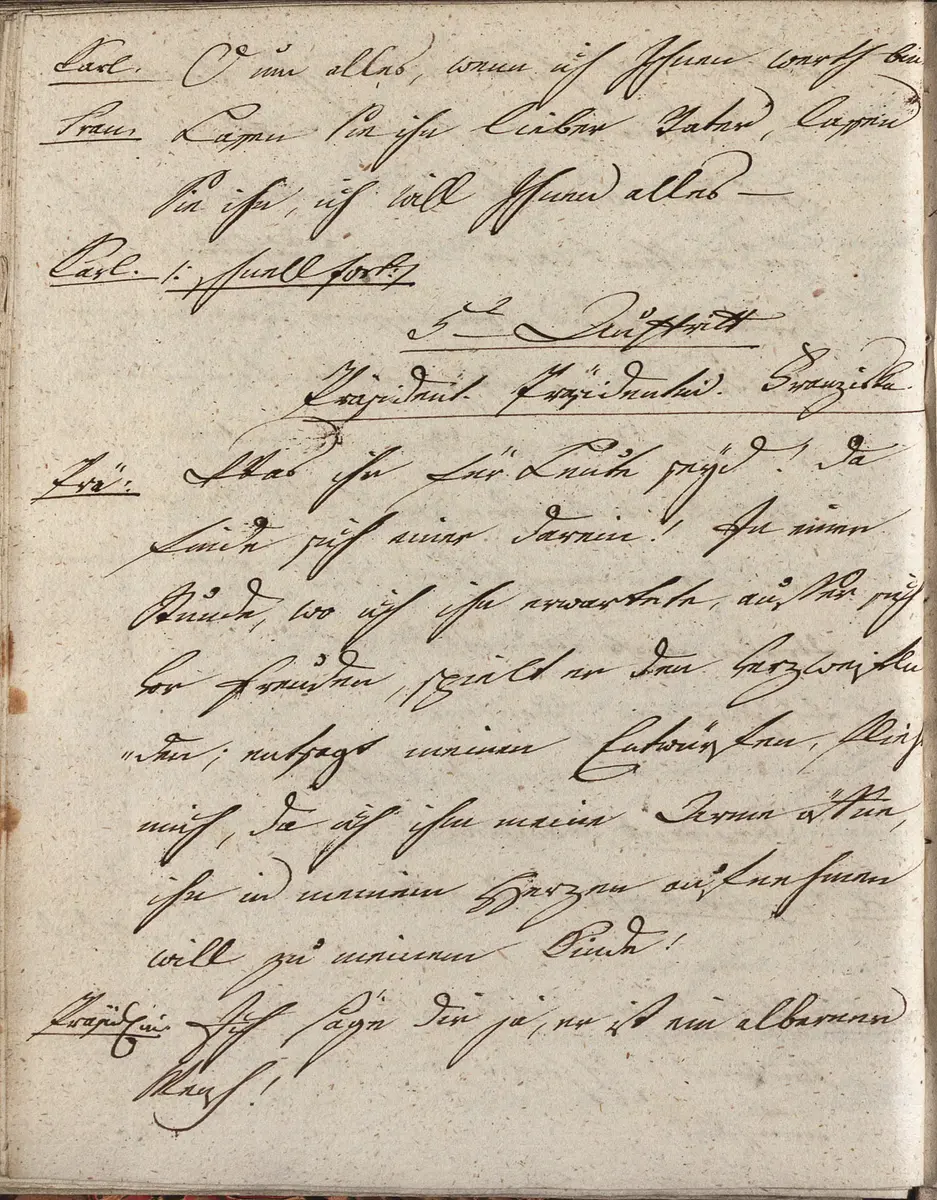 Karl. O um alles, wenn ich Ihnen werth bin
Fran. Laßen Sie ihn lieber Vater, laßen
Sie ihn, ich will Ihnen alles —
Karl. /: schnell fort :/
5. Auftritt
Präsident. Präsidentin. Franziska.
Prä: Was ihr für Leute seyd! Da
finde sich einer darein! In einer
Stunde, wo ich ihn erwartete, ausser sich
vor Freuden, spielt er den Verzweifeln
"den; entsagt meinen Entwürfen, flieht
mich, da ich ihm meine Arme öffne,
ihn in meinem Herzen aufnehmen
will zu meinem Kinde!
Präsidtin. Ich sage dir ja, er ist ein alberner
Mensch!